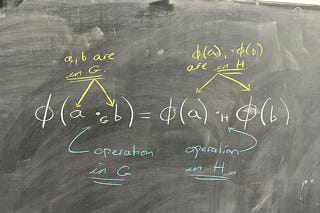 a, b are
in G.
ϕ(a), ϕ(b)
are in H.
ϕ(a ·G b) = ϕ(a) ·H ϕ(b)
operation
in G
operation
in H